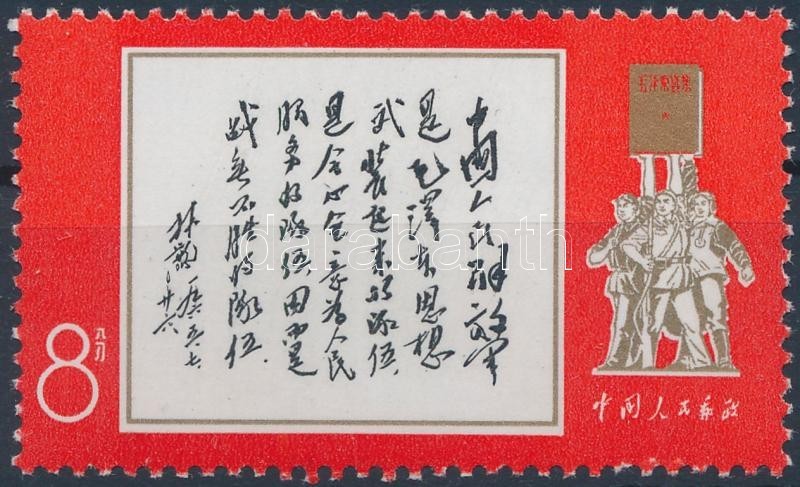 中國人民解放军
是毛澤东思想
武裝起来的队伍,
是全心全意为人民
服务的队伍,因而是
战无不胜的队伍.
林彪 一九六五、七、
廿六
毛泽东选集
8
八分
中国人民邮政
darabanth